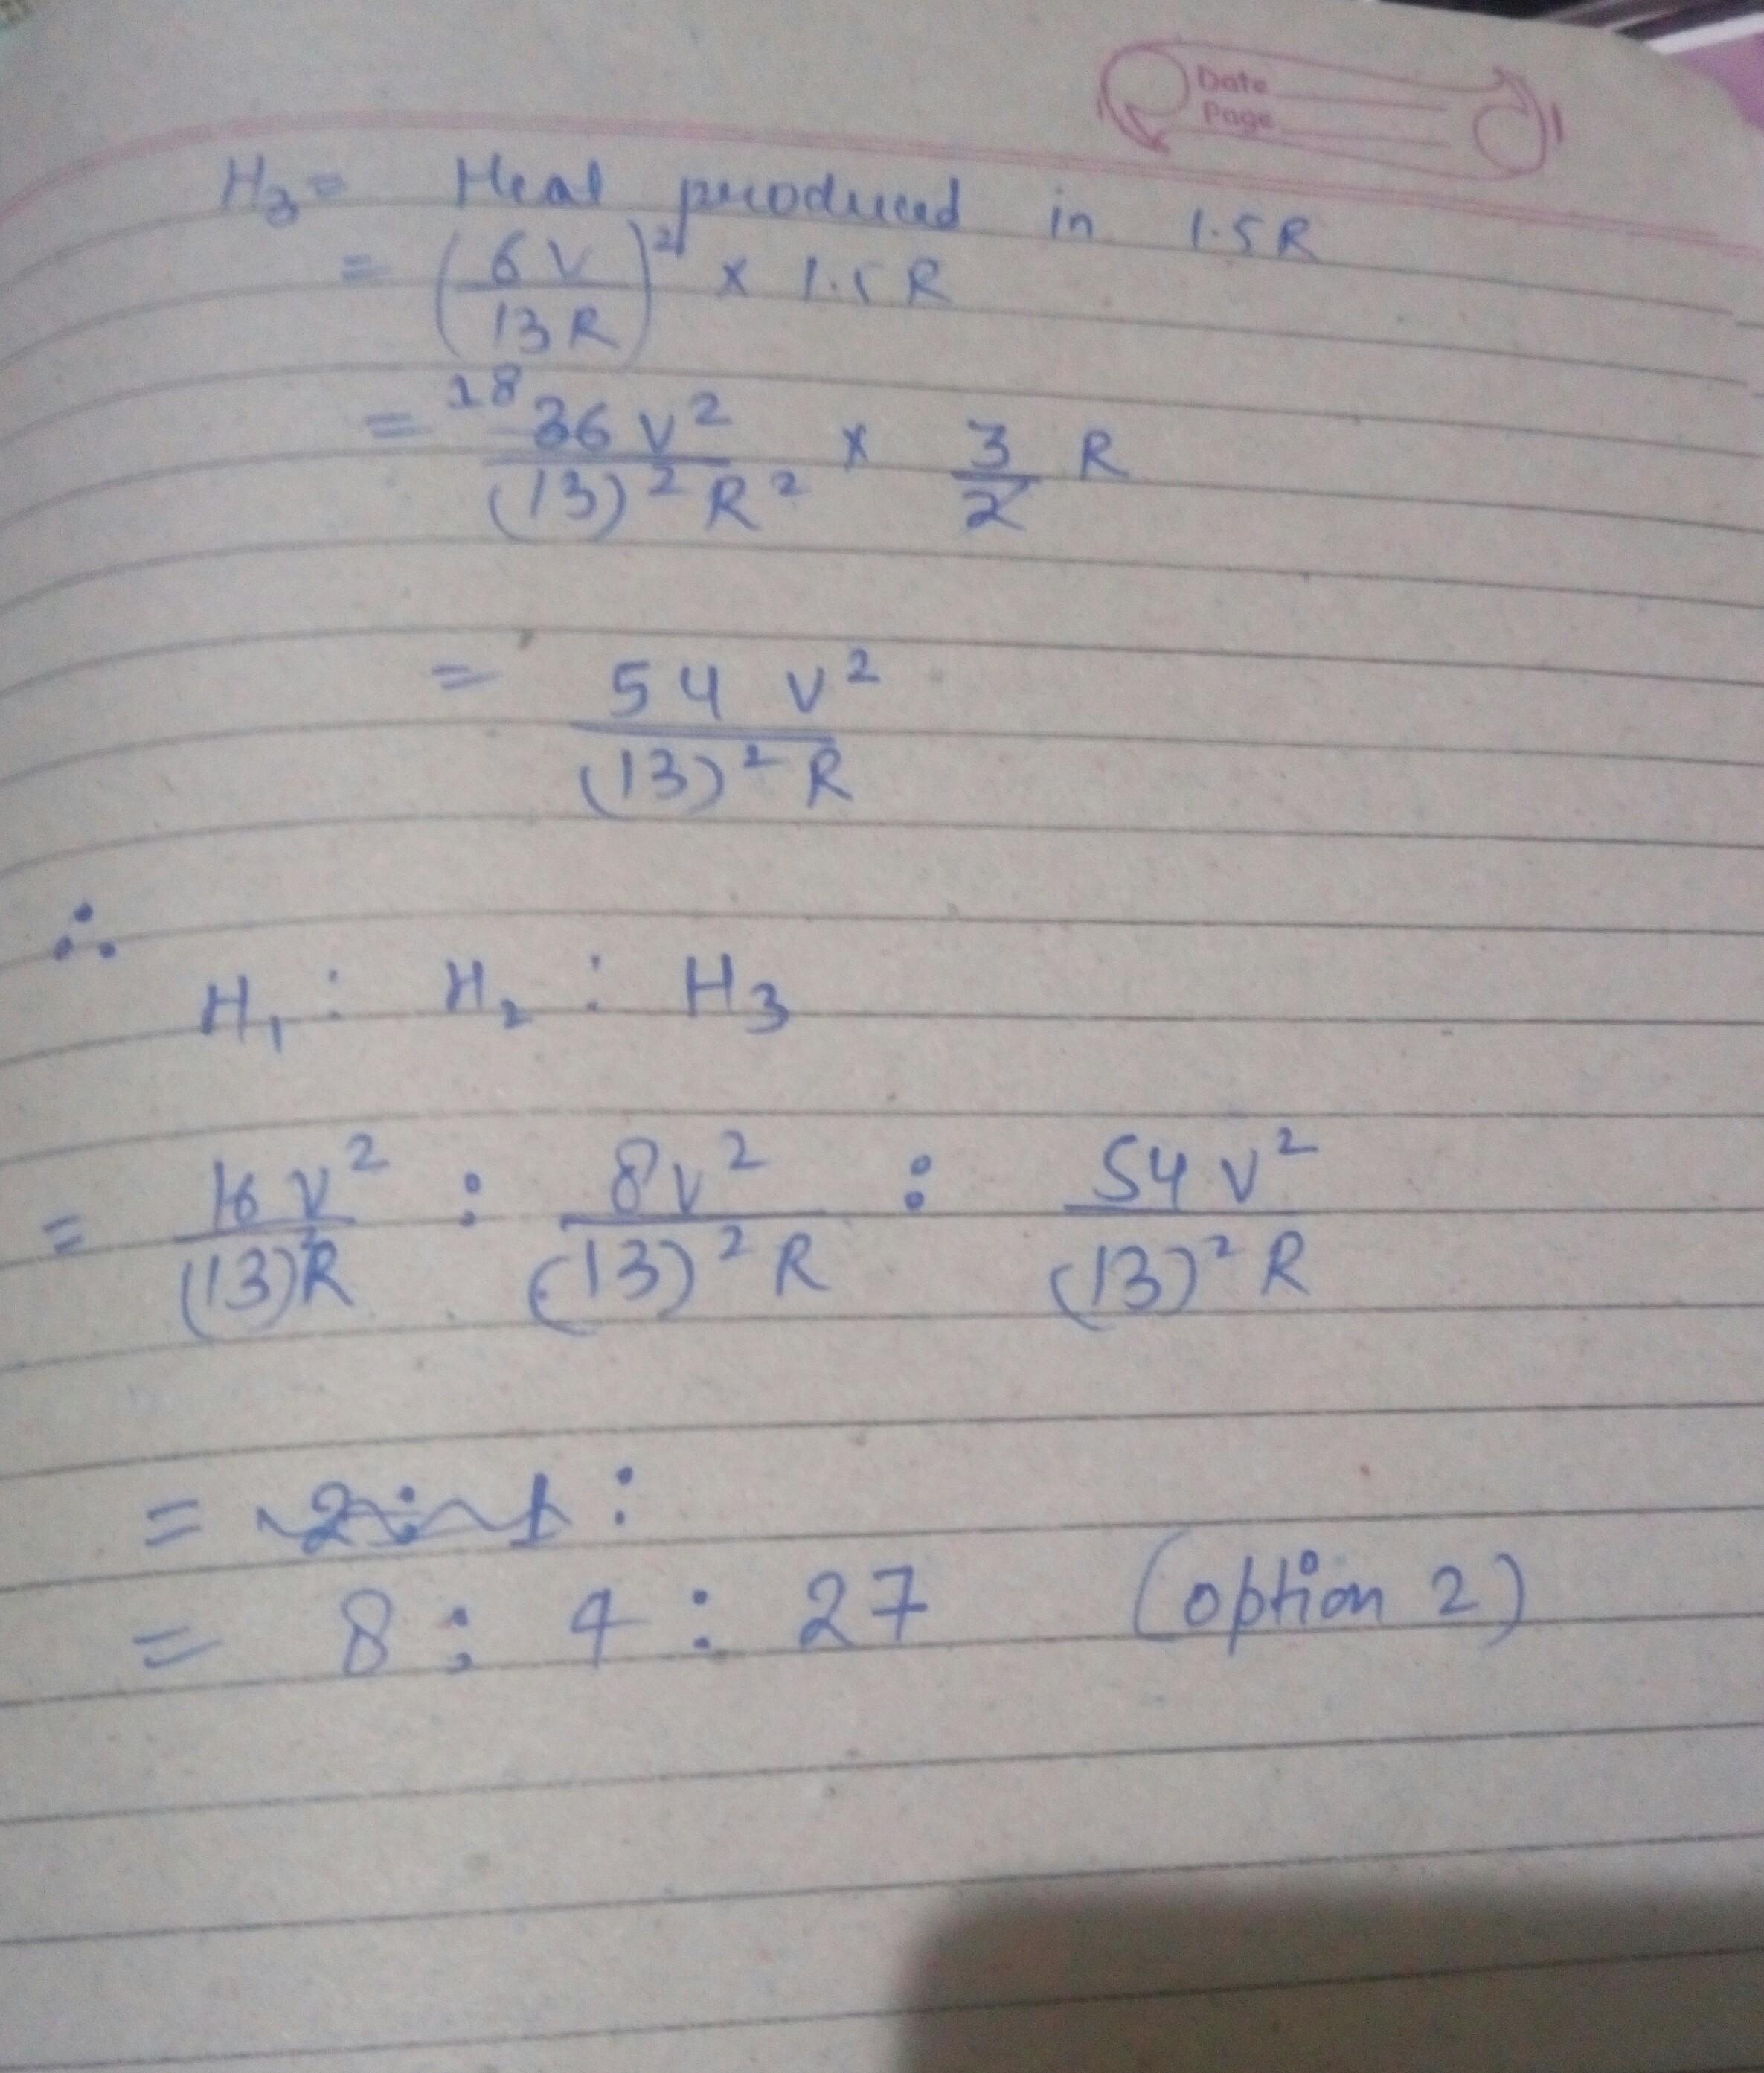 Date
Page
H₃ = Heat produced in 1.5R
= (6V/13R)² × 1.5 R
= 18 36 V²/(13)² R² × 3/2 R
= 54 V²/(13)² R
∴
H₁ : H₂ : H₃
= 16 V²/(13)²R : 8V²/(13)² R : 54 V²/(13)² R
= 2 : 1 :
= 8 : 4 : 27 (option 2)